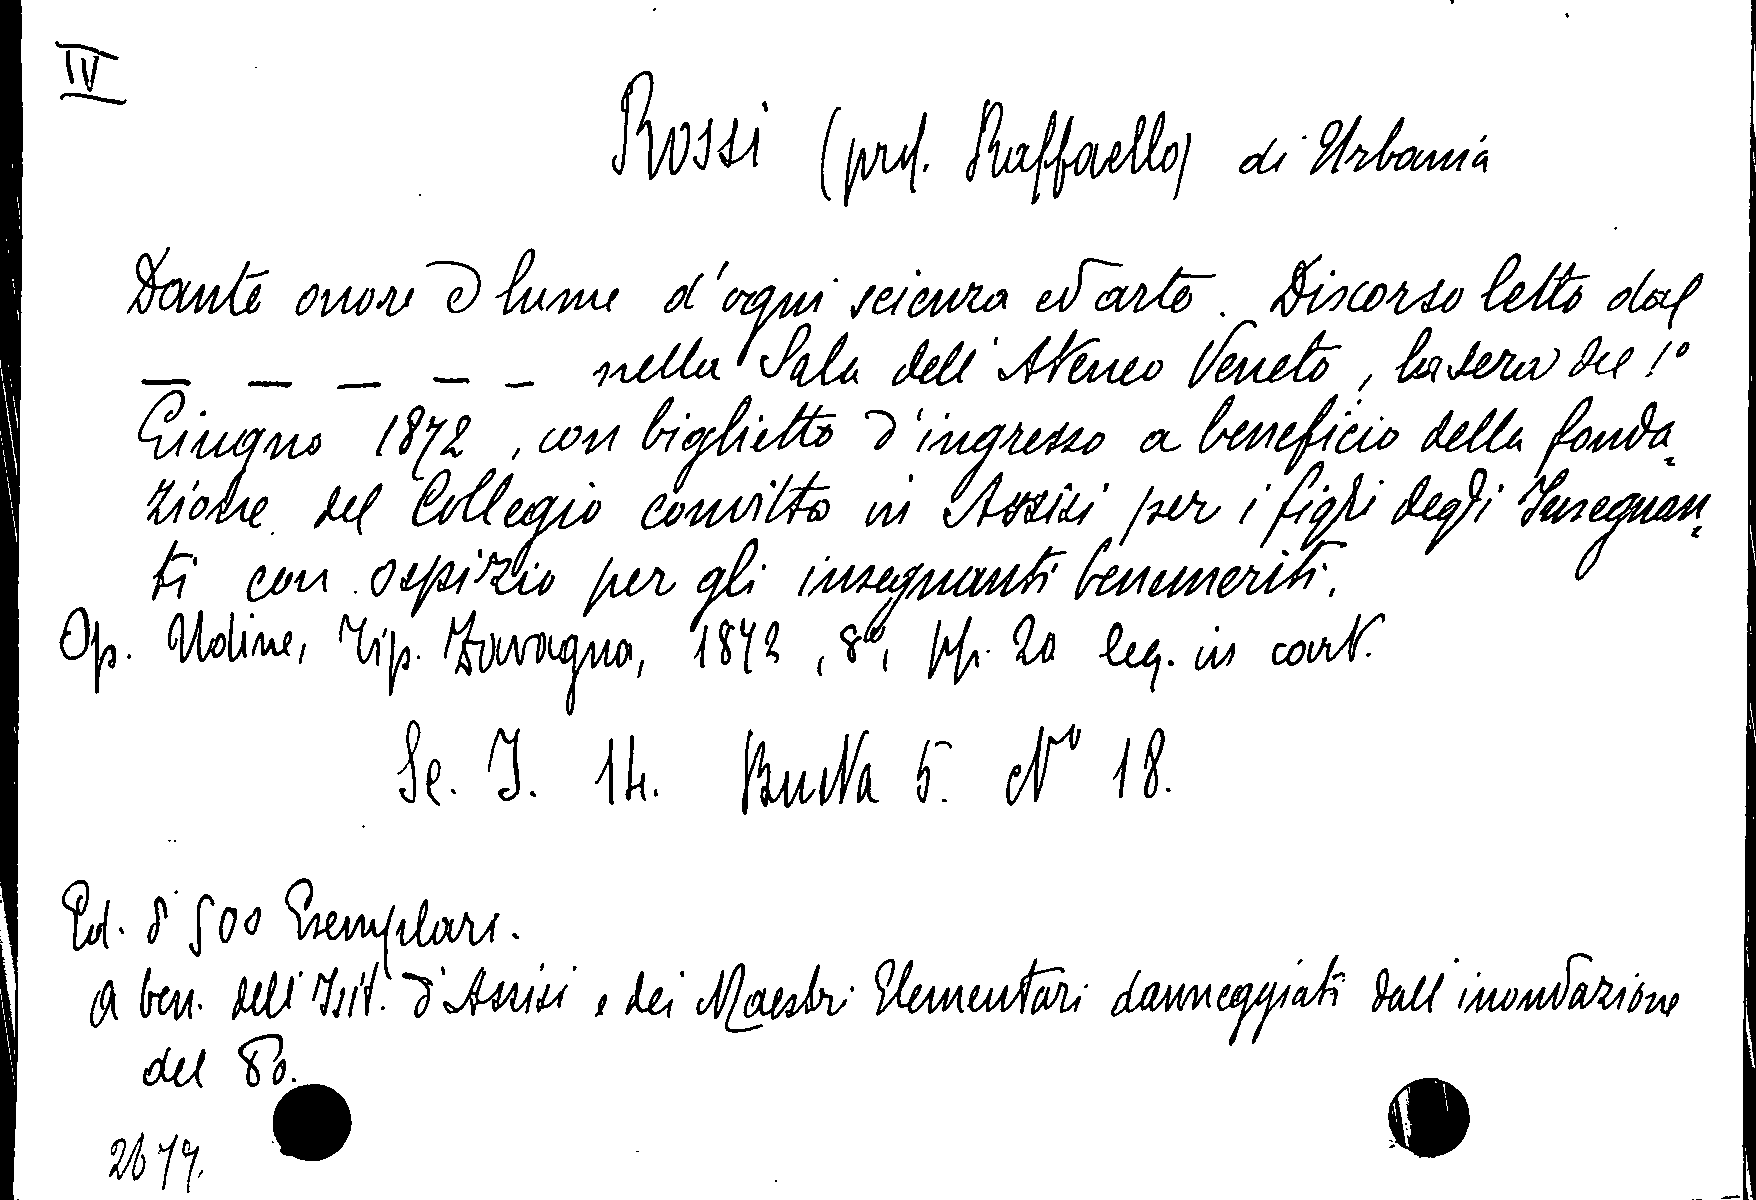 IV
Rossi (prof. Raffaello) di Urbania
Dante onore e lume d'ogni scienza ed arte. Discorso letto dal
— — — — — nella Sala dell'Ateneo Veneto, la sera del 1°
Giugno 1872, con biglietto d'ingresso a beneficio della fonda-
zione del Collegio convitto in Assisi per i figli degli Insegnan-
ti con ospizio per gli insegnanti benemeriti.
Op. Udine, Tip. Zavagna, 1872, 8°, pp. 20 leg. in cart.
Se. I. 14. Busta 5. N° 18.
Ed. di 500 Esemplari.
a ben. dell'Ist. d'Assisi e dei Maestri Elementari danneggiati dall'inondazione
del Po.
2677.